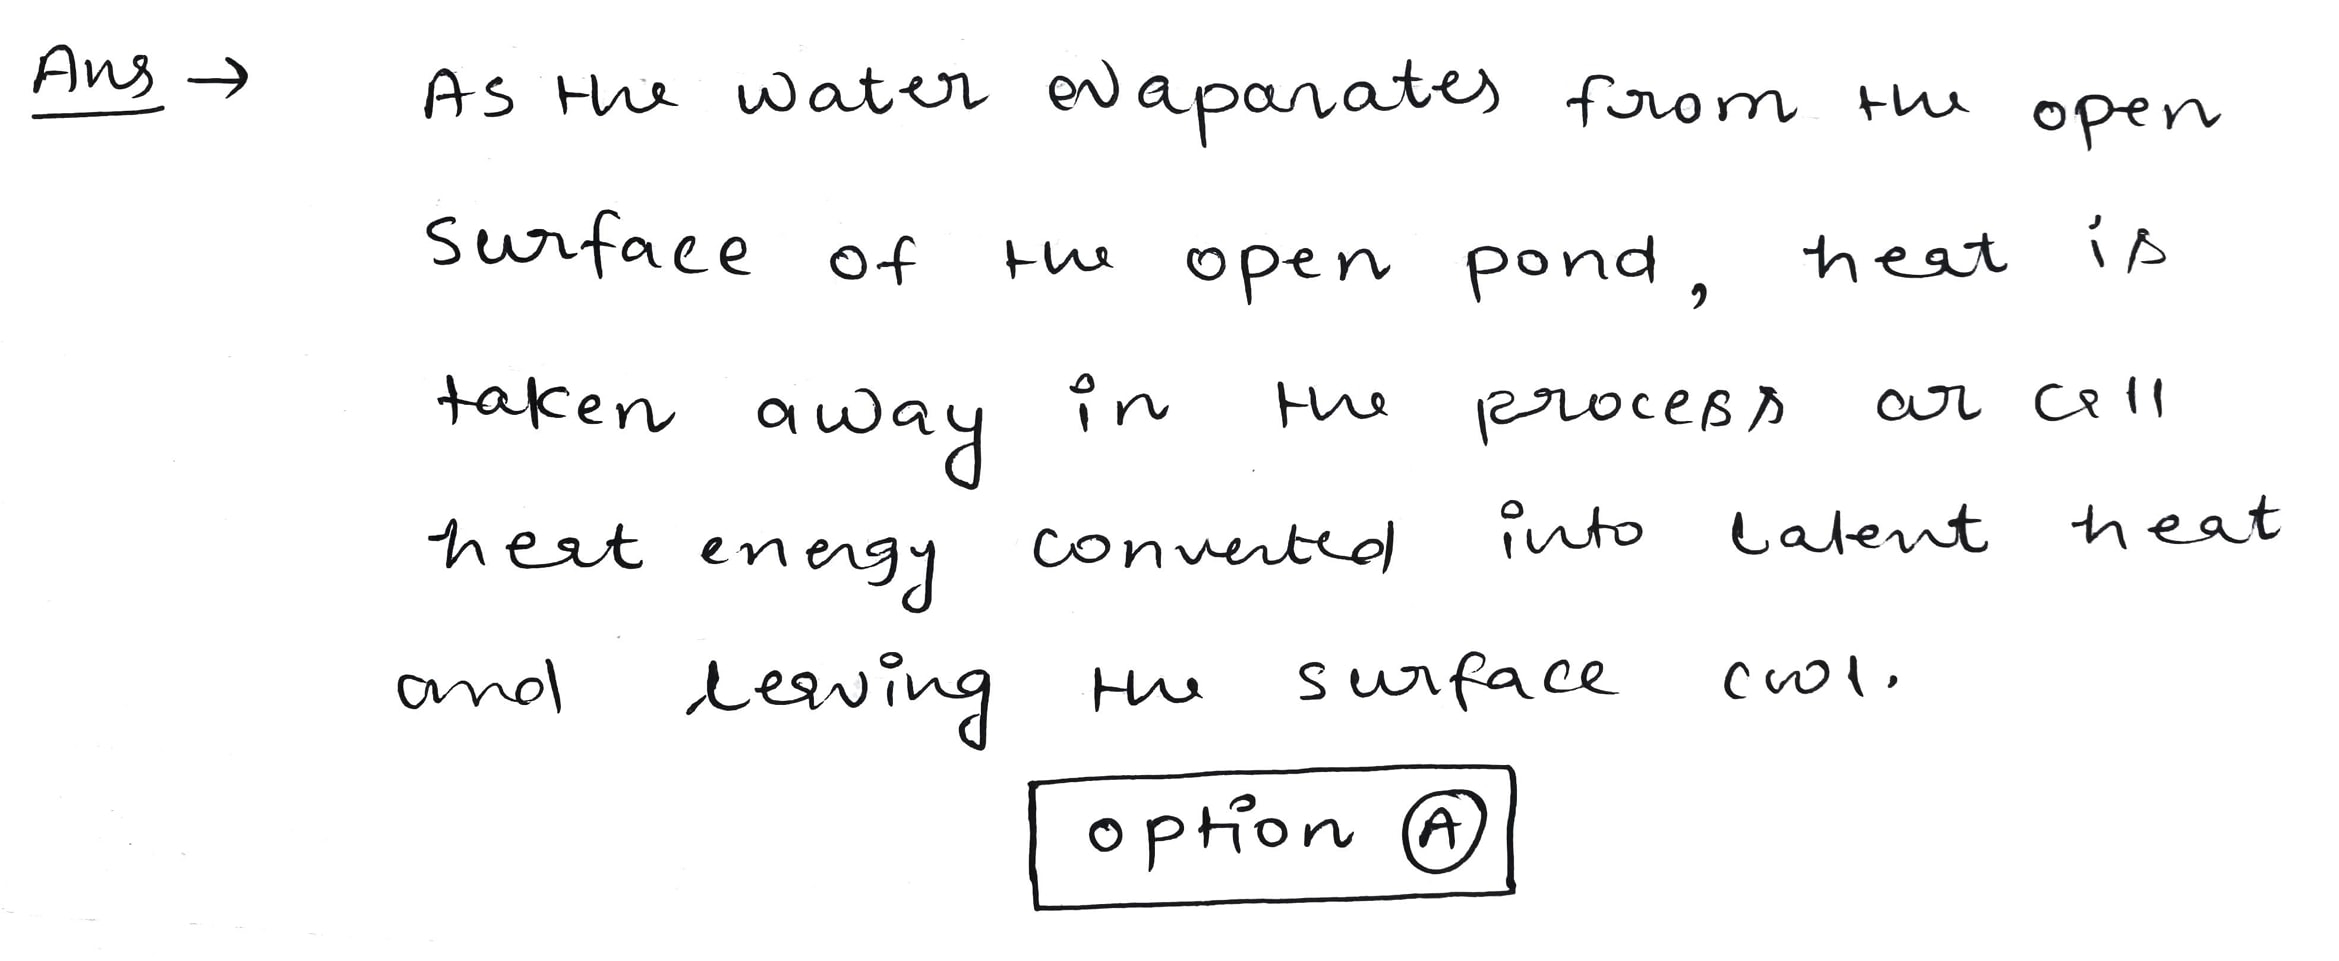 Ans → As the water evaparates from the open
surface of the open pond, heat is
taken away in the process ar cell
heat energy converted into latent heat
and leaving the surface cool.
option A